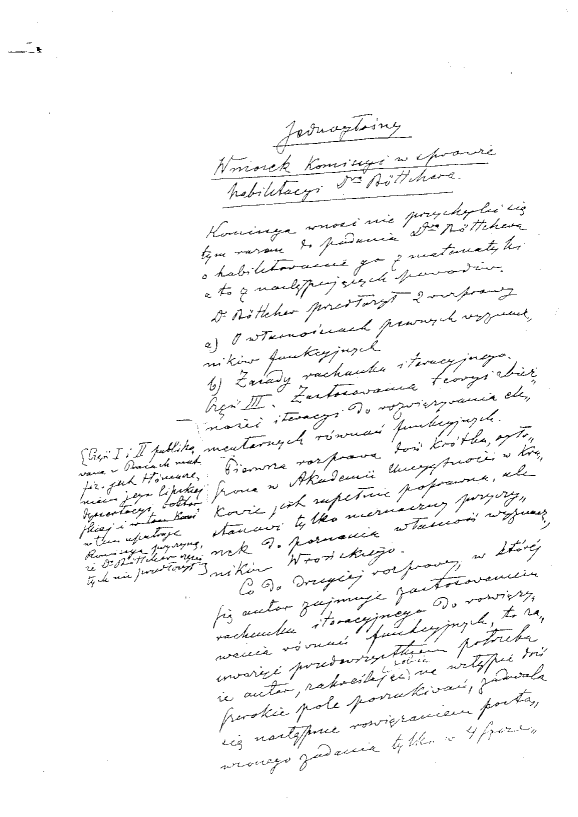 Jednogłośny
Wniosek Komisyi w sprawie
habilitacyi Dra Böttchera.
Komisya wnosi nie przychylić się
tym razem do podania Dra Böttchera
o habilitowanie go z matematyki
a to z następujących powodów.
Dr Böttcher przedłożył 2 rozprawy
a) O własnościach pewnych wyznacz„
ników funkcyjnych
b) Zasady rachunku iteracyjnego.
Część III. Zastosowania teoryi zbież„
ności iteracyi do rozwiązywania ele„
mentarnych równań funkcyjnych.
{Część I i II publiko„
wana w Pracach mat
fiz. jest
niem jego lipskiej
dysertacyi,
i
w tem upatruje
Komisya przyczynę,
że Dr Böttcher części
tych nie przedłożył}
Pierwsza rozprawa dość krótka, ogło„
szona w Akademii Umiejętności w Kra„
kowie jest zupełnie poprawna, ale
stanowi tylko nieznaczny przyczy„
nek do poznania własności wyznacz„
ników Wrońskiego.
Co do drugiej rozprawy, w której
się autor zajmuje zastosowaniem
rachunku iteracyjnego do rozwiązy„
wania równań funkcyjnych, to za„
uważyć przedewszystkiem potrzeba
że autor, zakreśliwszy sobie na wstępie dość
szerokie pole poszukiwań, zadowala
się następnie rozwiązaniem posta„
wionego zadania tylko w 4